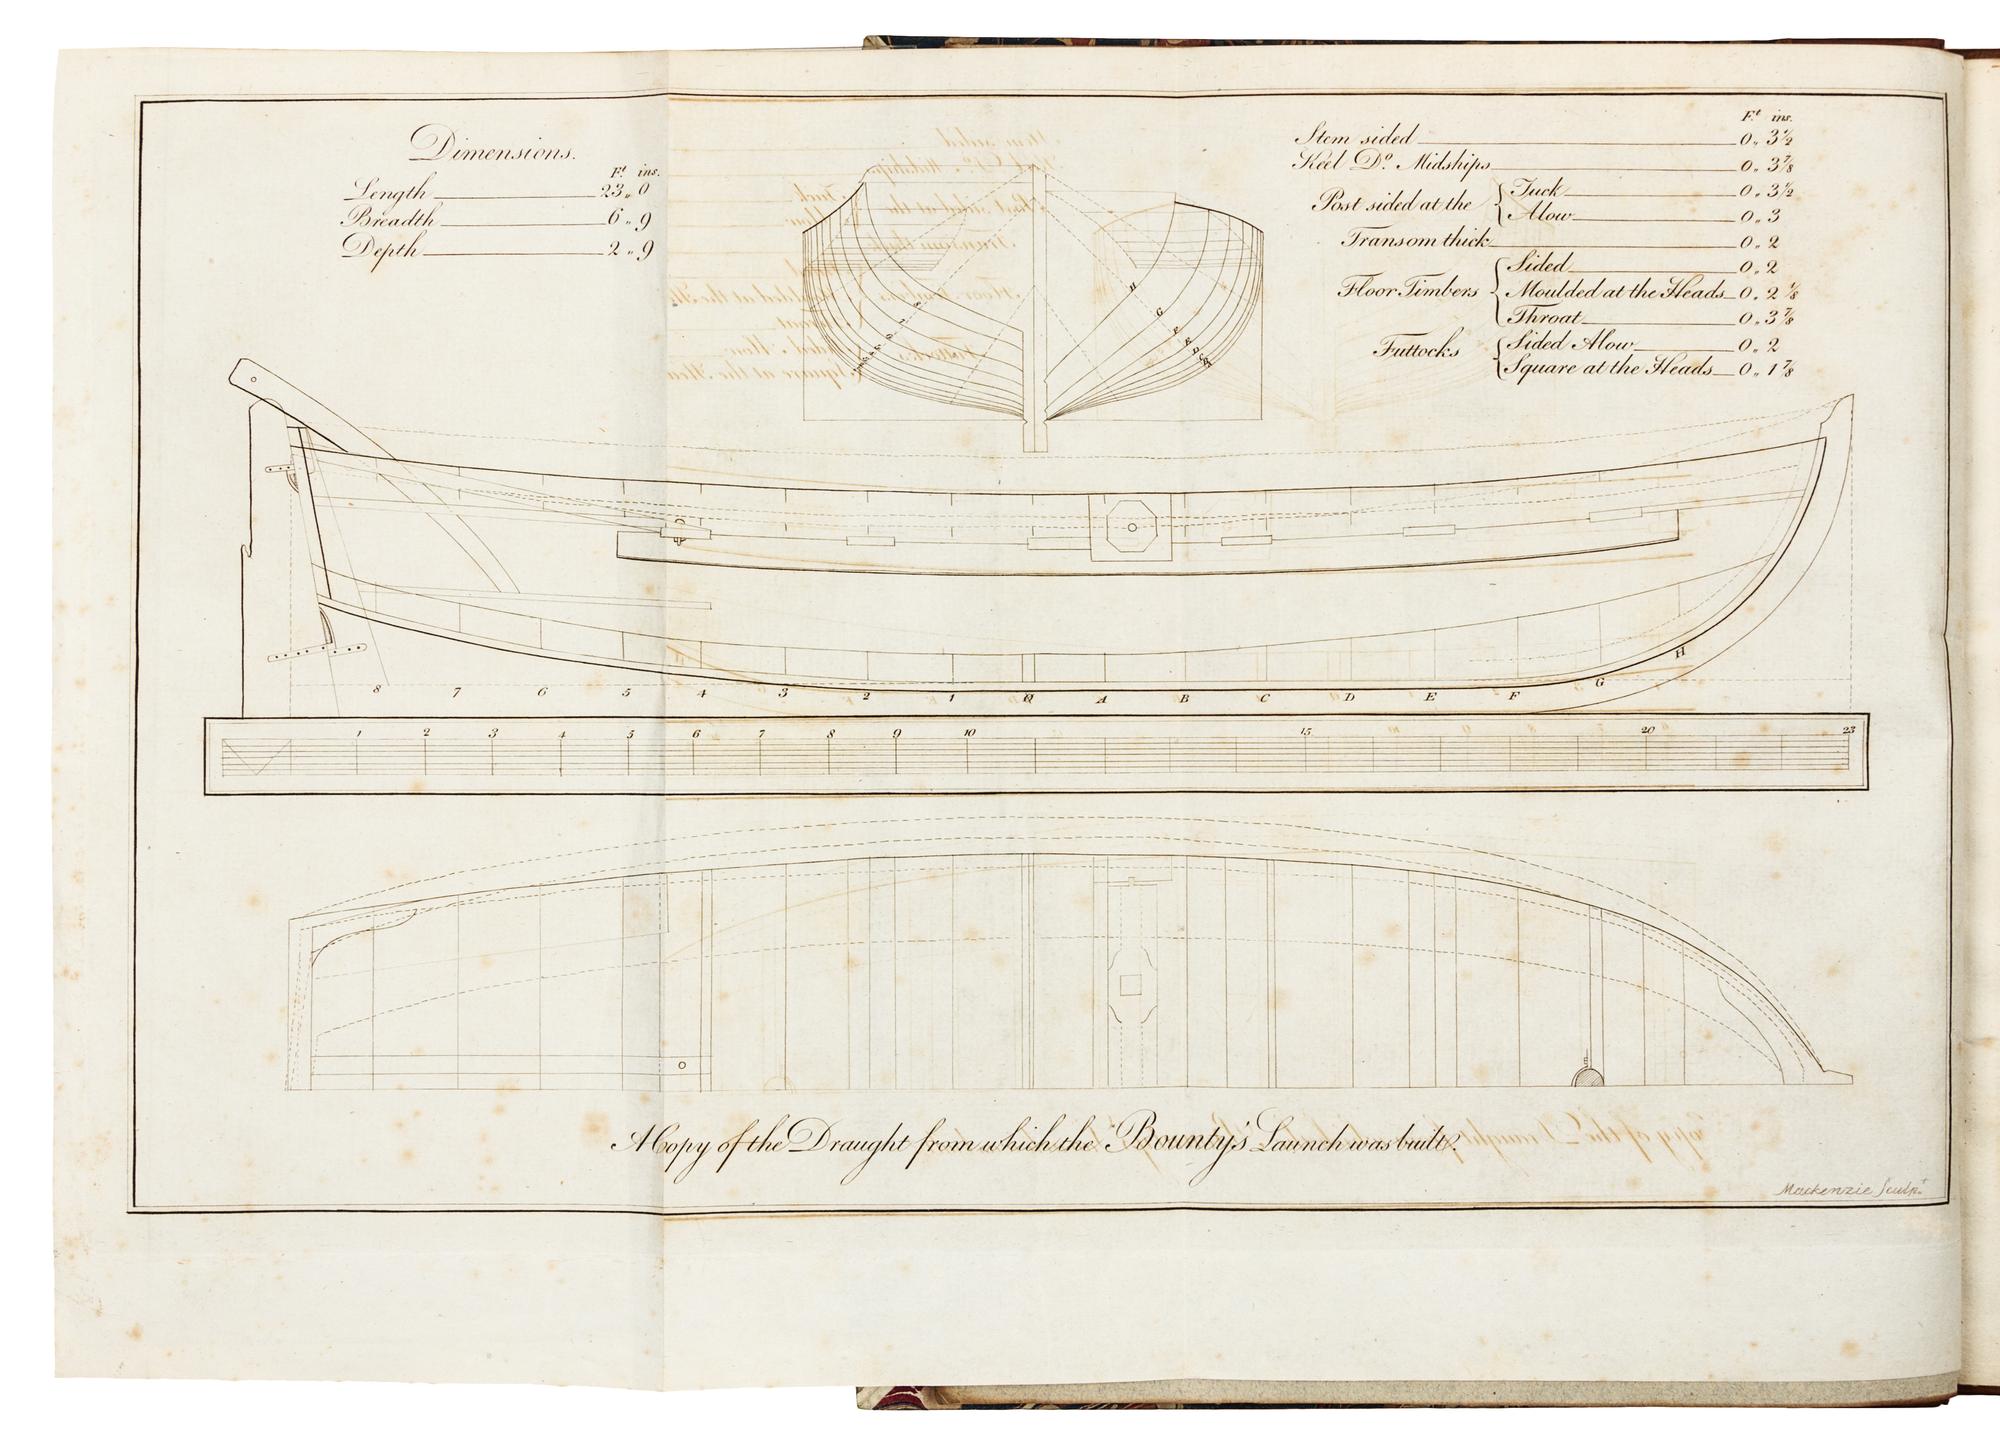 Dimensions.
Ft. ins.
Length 23 „ 0
Breadth 6 „ 9
Depth 2 „ 9
Ft. ins.
Stem sided 0 „ 3 1/2
Keel Do. Midships 0 „ 3 7/8
Post sided at the { Tuck 0 „ 3 1/2
Alow 0 „ 3
Transom thick 0 „ 2
Floor Timbers { Sided 0 „ 2
Moulded at the Heads 0 „ 2 1/8
Throat 0 „ 3 7/8
Futtocks { Sided Alow 0 „ 2
Square at the Heads 0 „ 1 7/8
H G F E D C
8 7 6 5 4 3 2 1 A B C D E F G H
1 2 3 4 5 6 7 8 9 10 15 20 23
A Copy of the Draught from which the Bounty's Launch was built.
Mackenzie Sculpt.